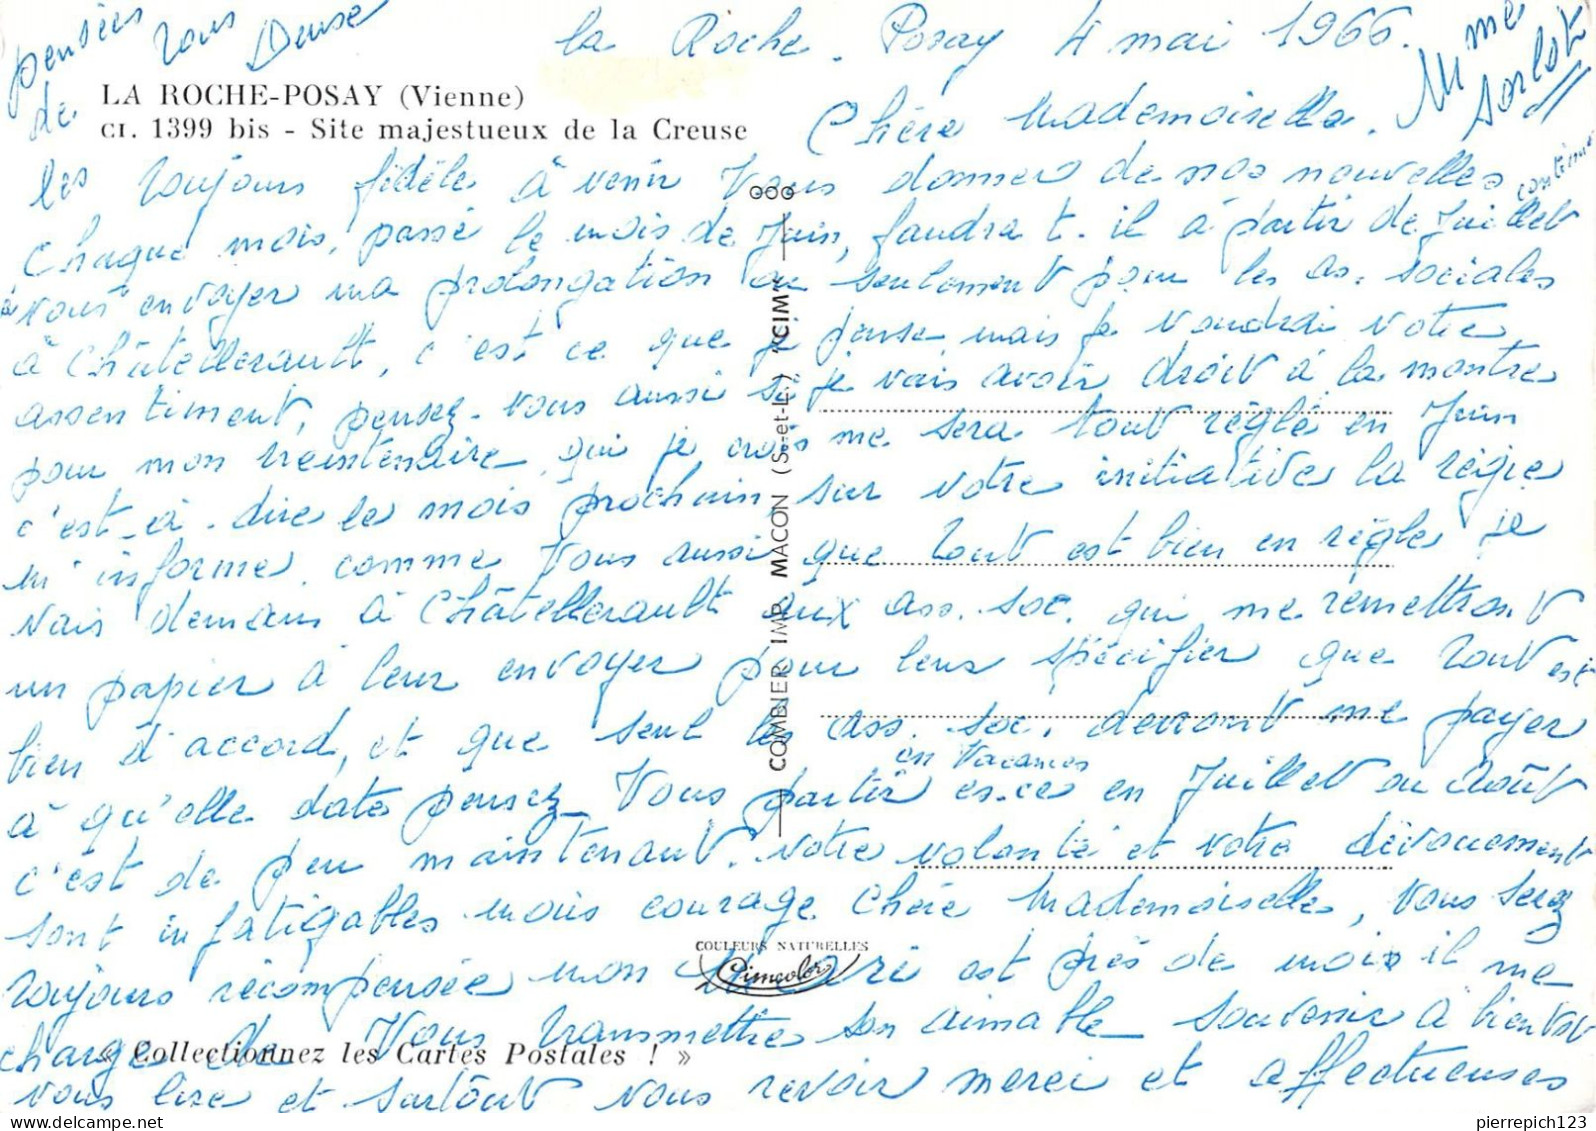 la Roche-Posay 4 mai 1966.
LA ROCHE-POSAY (Vienne)
CI. 1399 bis - Site majestueux de la Creuse
Chère Mademoiselle.
toujours fidèle à venir Vous donner de nos nouvelles
Chaque mois, passé le mois de Juin, faudra t-il à partir de Juillet
vous envoyer ma prolongation ou seulement pour les as. sociales
à Châtellerault, c'est ce que je pense, mais je voudrai votre
assentiment, pensez-vous aussi si je vais avoir droit à la montre
pour mon trentenaire, qui je crois me sera tout réglé en Juin
c'est-à-dire le mois prochain, sur votre initiative la régie
m'informe, comme Vous aussi que tout est bien en règle, je
vais demain à Châtellerault aux ass. soc. qui me remettront
un papier à leur envoyer pour leur spécifier que tout est
bien d'accord, et que seul les ass. soc. devront me payer
à qu'elle date pensez-Vous partir en Vacances es-ce en Juillet ou Août
c'est de peu maintenant. votre volonté et votre dévouement
sont infatigables mais courage Chère Mademoiselle, Vous serez
toujours récompensée mon mari est près de moi il me
charge de Vous transmettre son aimable souvenir à bientôt
vous lire et surtout vous revoir merci et affectueuses
pensées de les tous Denise
Mme Sorlot
continue
COMBIER IMP. MACON (S.-et-L.) "CIM"
COULEURS NATURELLES
Cimcolor
« Collectionnez les Cartes Postales ! »
pierrepich123